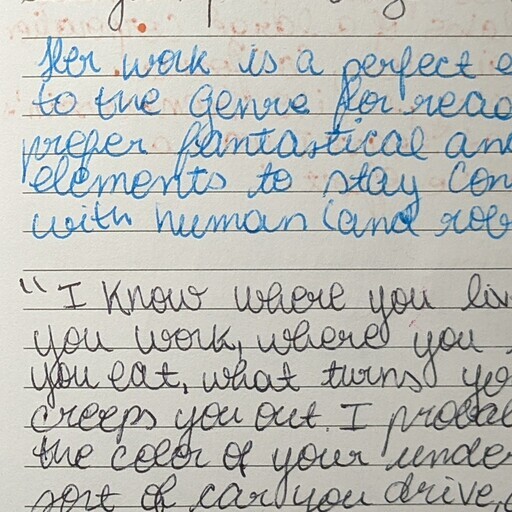 Her work is a perfect e
to the genre for read
prefer fantastical and
elements to stay con
with human (and rob
"I know where you liv
you work, where you
you eat, what turns yo
creeps you out. I probab
the color of your unde
sort of car you drive,